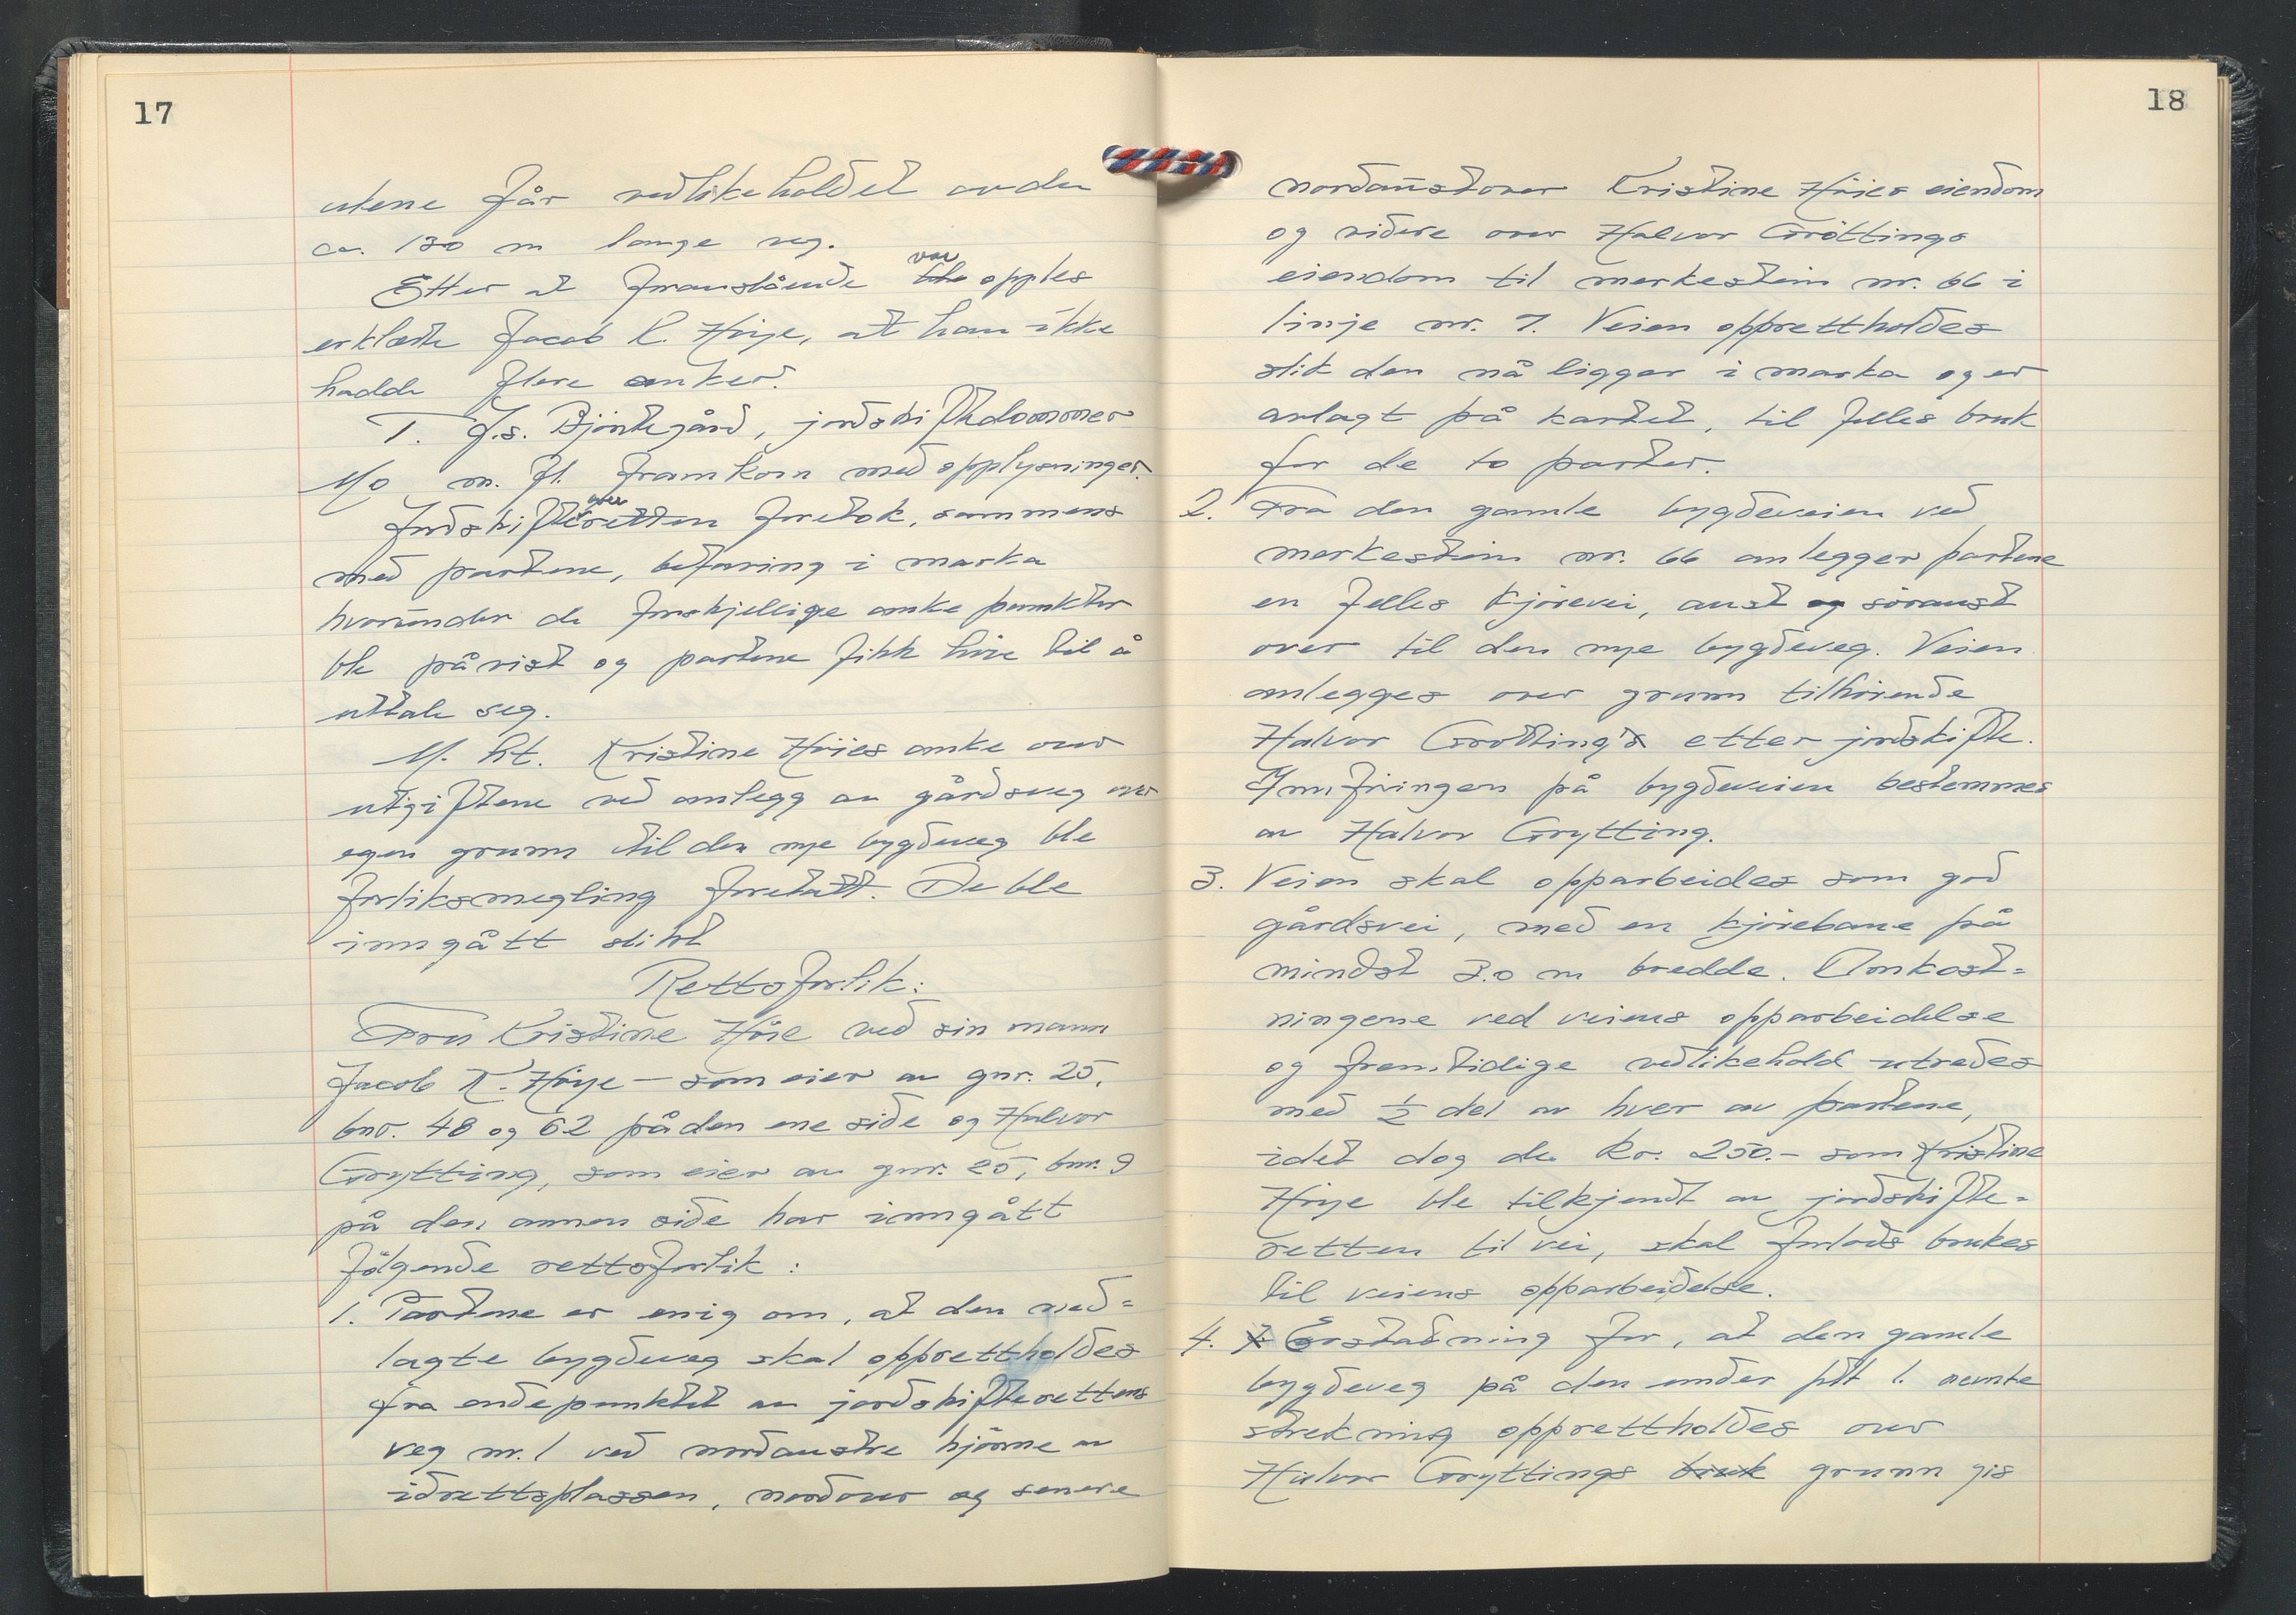 17
utene får vedlikeholdet av den
ca. 130 m lange veg.
Etter at foranstående ble var opples
erklærte Jacob K. Höye, at han ikke
hadde flere anker.
T. J.s. Björtegård, jordskiftedommer
Mo m. fl. framkom med opplysninger.
Jordskifteoverretten foretok, sammens
med partene, befaring i marka
hvorunder de forskjellige anke punkter
ble påvist og partene fikk høve til å
uttale seg.
M. ht. Kristine Höies anke over
utgiftene ved anlegg av gårdsveg over
egen grunn til den nye bygdeveg ble
forliksmegling foretatt. De ble
inngått slikt
Rettsforlik:
Fru Kristine Höie ved sin mann
Jacob K. Höye – som eier av gnr. 25,
bnr. 48 og 62 på den ene side og Halvor
Grytting, som eier av gnr. 25, bnr. 9
på den annen side har inngått
følgende rettsforlik:
1. Partene er enig om, at den ned=
lagte bygdeveg skal opprettholdes
fra endepunktet av jordskifterettens
veg nr. 1 ved nordaustre hjörne av
idrettsplassen, nordover og senere
18
nordaustover Kristine Höies eiendom
og videre over Halvor Gröttings
eiendom til merkestein nr. 66 i
linje nr. 7. Veien opprettholdes
slik den nå ligger i marka og er
anlagt på kartet, til felles bruk
for de to parter.
2. Fra den gamle bygdeveien ved
merkestein nr. 66 anlegger partene
en felles kjörevei, aust og söraust
over til den nye bygdeveg. Veien
anlegges over grunn tilhörende
Halvor Grötting's etter jordskifte.
Innföringen på bygdeveien bestemmes
av Halvor Grytting.
3. Veien skal opparbeides som god
gårdsvei, med en kjörebane på
mindst 3.0 m bredde. Omkost=
ningene ved veiens opparbeidelse
og fremtidige vedlikehold utredes
med ½ del av hver av partene,
idet dog de kr. 250.- som Kristine
Höye ble tilkjendt av jordskifte=
retten til vei, skal forlods brukes
til veiens opparbeidelse.
4. Erstatning for, at den gamle
bygdeveg på den under pkt 1. nevnte
strekning opprettholdes over
Halvor Gryttings bruk grunn gis